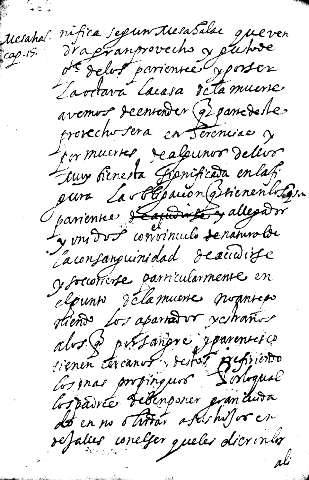 Mesahal.
cap. 15.
nifica segun Mesahalac que ven
dra gran provecho y gusto de
de los parientes y por ser
la octava la casa de la muerte
avemos de entender q parte deste
provecho sera en herencias y
por muertes de algunos dellos
muy bien esta significada en la fi
gura la obligacion q tienen los
parientes de acudirse y allegados
y unidos con el vinculo de natural de
la consanguinidad de acudirse
y socorrerse particularmente en
el punto de la muerte no antepo
niendo los apartados y estraños
a los q por sangre y parentesco
tienen cercanos y destos prefiriendo
los mas propinquos Por lo qual
los padres deben poner gran cuida
do en no olvidar a sus hijos en
dejalles con el ser que les dieron los
ali